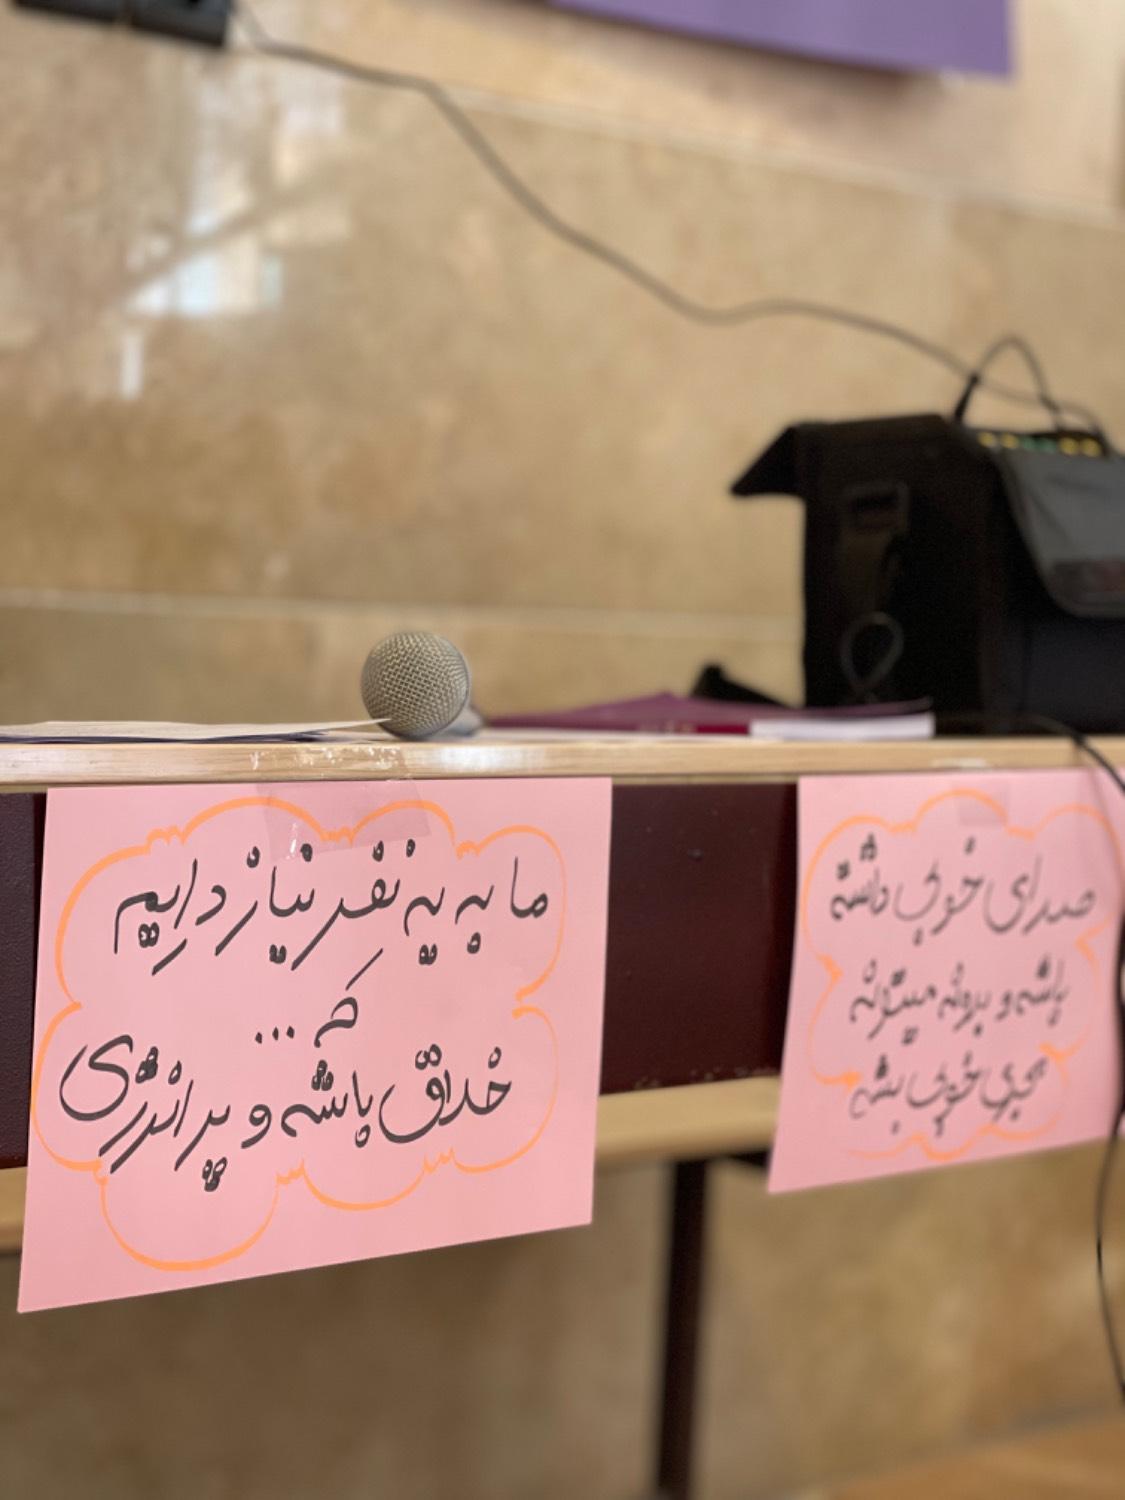 ما به یه نفر نیاز داریم
که ...
خلاق باشه و پر انرژی
صدای خوبی داشته
باشه و بتونه
مجری خوبی بشه